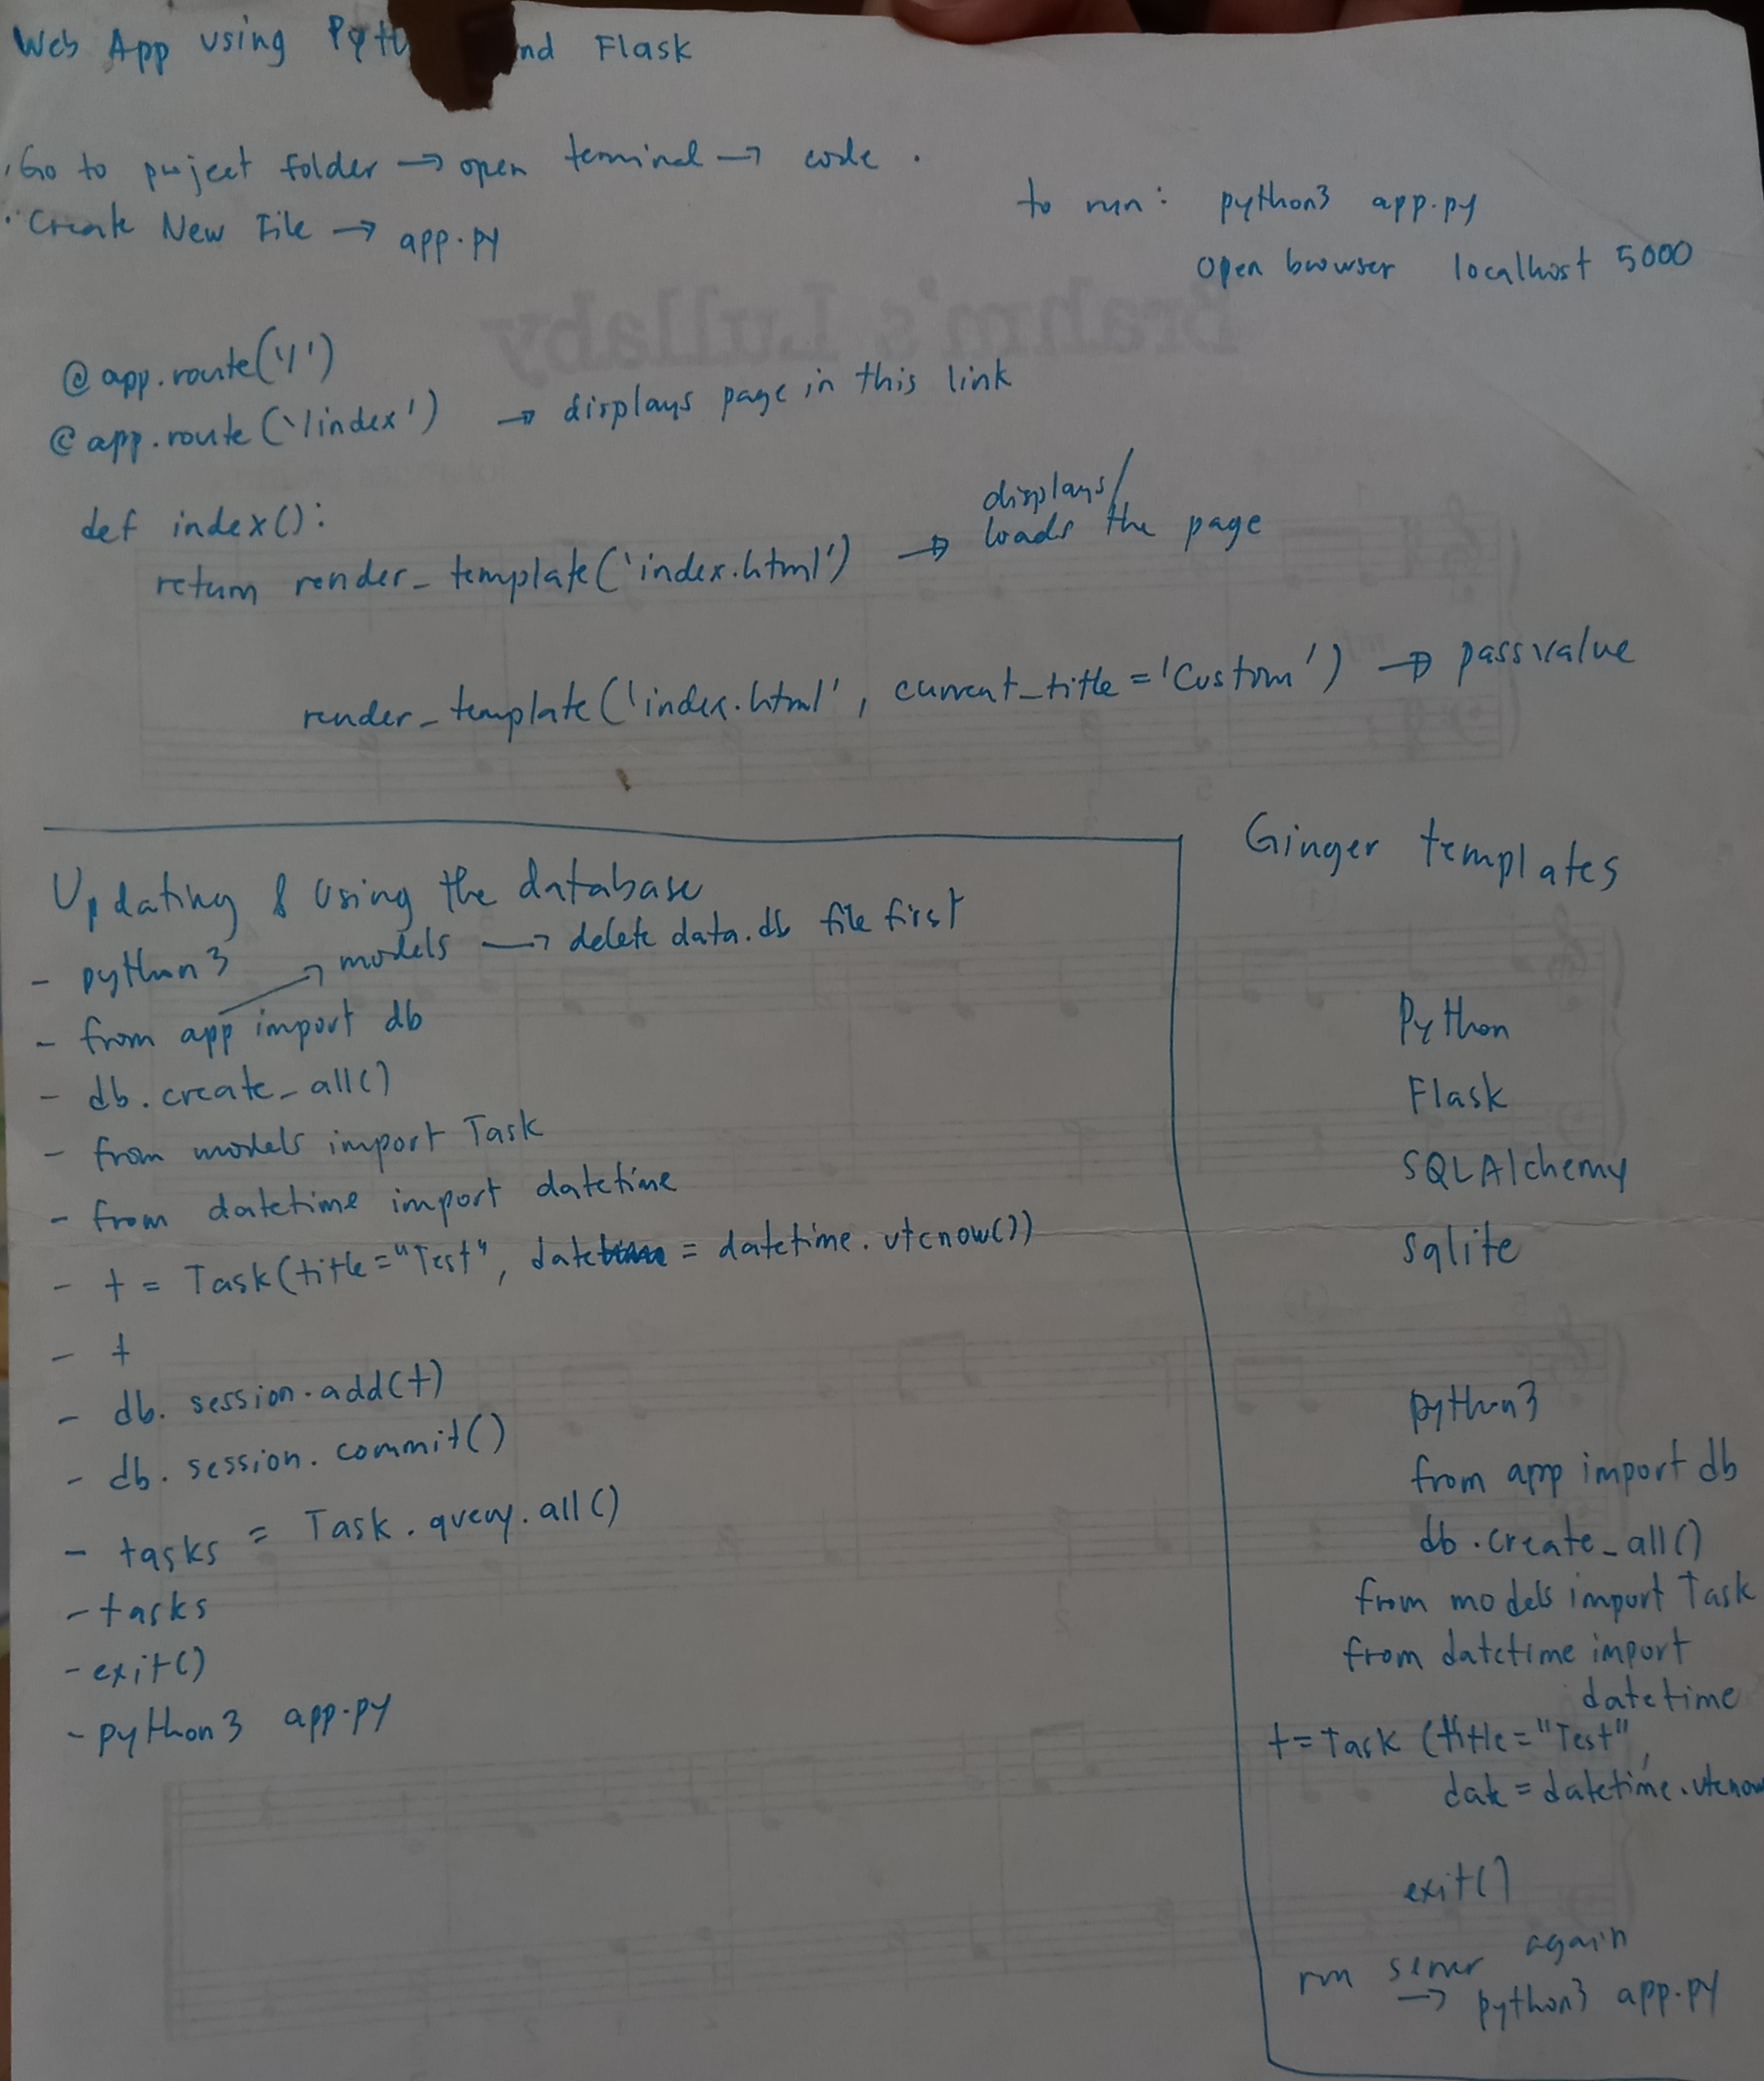 Web App using Pyth nd Flask
. Go to project folder → open terminal → code .
. Create New File → app.py
to run: python3 app.py
open browser localhost 5000
Brahm's Lullaby
@app.route('/')
@app.route('/index') → displays page in this link
def index():
return render_template('index.html') → displays/
loads the page
render_template('index.html', current_title = 'Custom') → pass value
Updating & Using the database
- python3 → models → delete data.db file first
- from app import db
- db.create_all()
- from models import Task
- from datetime import datetime
- t = Task(title="Test", date = datetime.utcnow())
- t
- db.session.add(t)
- db.session.commit()
- tasks = Task.query.all()
- tasks
- exit()
- python3 app.py
Ginger templates
Python
Flask
SQLAlchemy
sqlite
python3
from app import db
db.create_all()
from models import Task
from datetime import
datetime
t = Task (title = "Test",
date = datetime.utcnow
exit()
run server again
→ python3 app.py